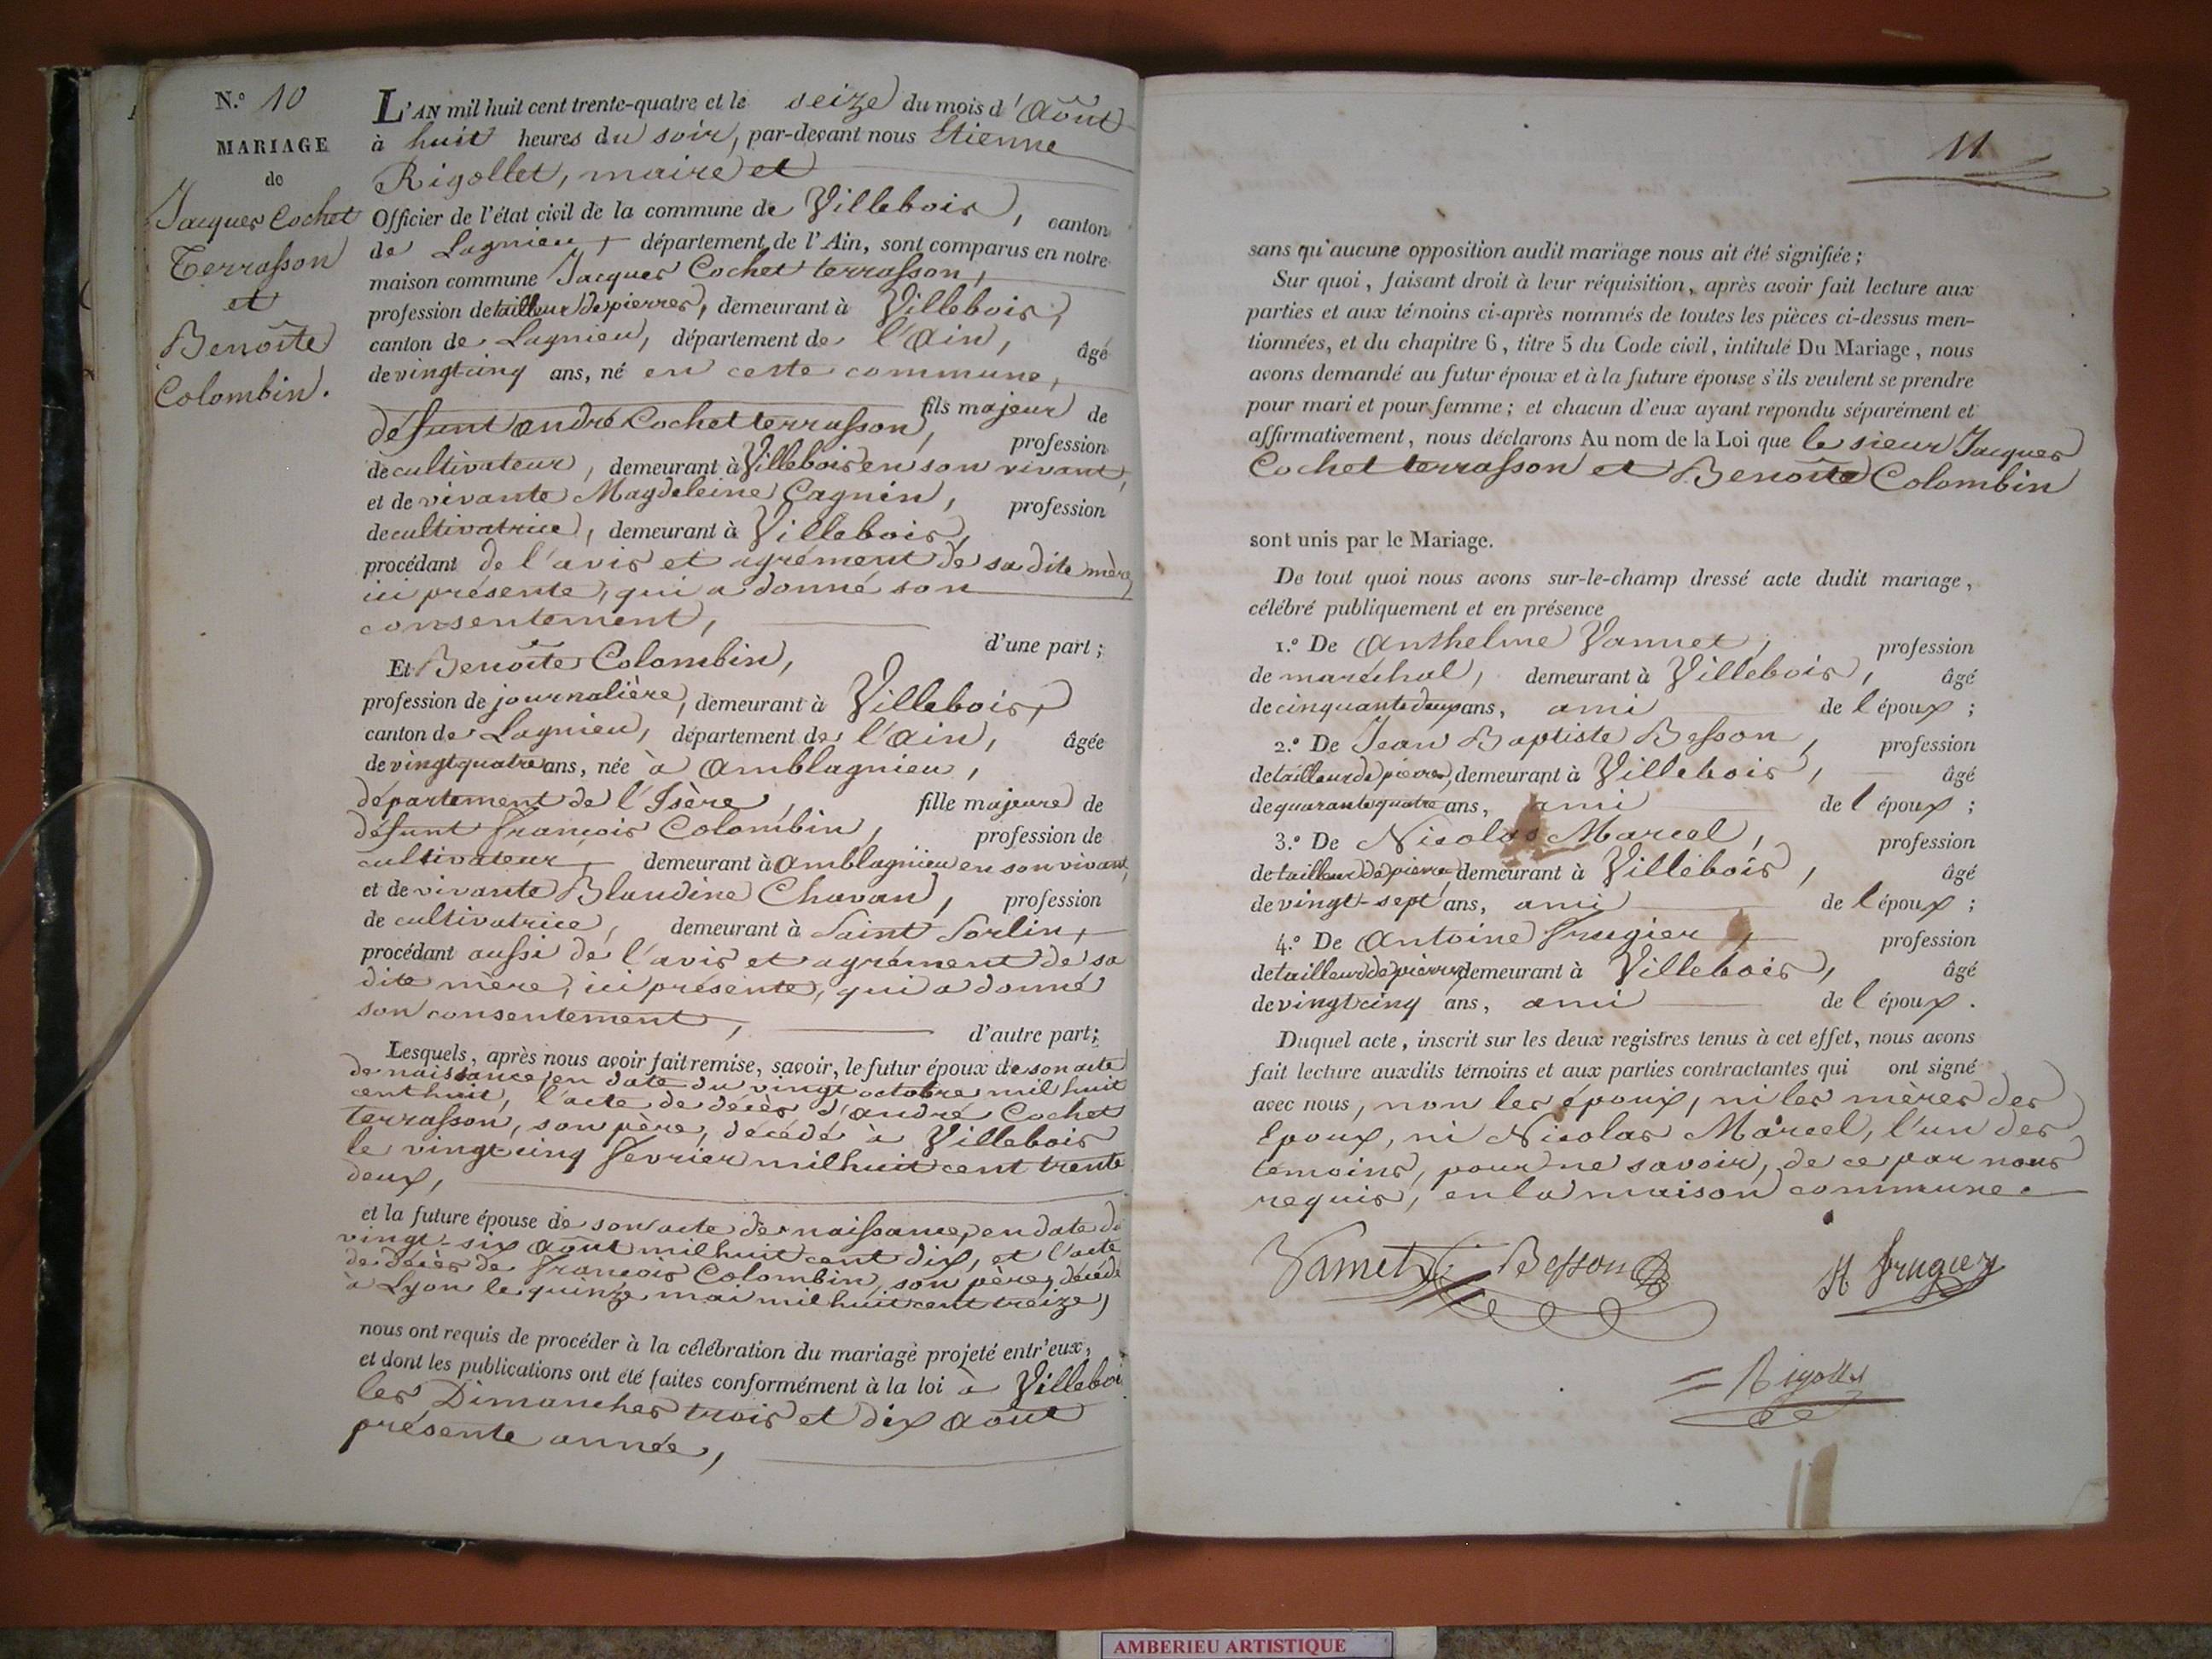 N.º 10
MARIAGE
de
Jacques Cochet
Terrasson
et
Benoîte
Colombin.
L'AN mil huit cent trente-quatre et le seize du mois d'Août
à huit heures du soir, par-devant nous Etienne
Rigollet, maire et
Officier de l'état civil de la commune de Villebois, canton
de Lagnieu, département de l'Ain, sont comparus en notre
maison commune Jacques Cochet terrasson,
profession de tailleur de pierres, demeurant à Villebois,
canton de Lagnieu, département de l'Ain, âgé
de vingt cinq ans, né en cette commune,
fils majeur de
défunt andré Cochet terrasson, profession
de cultivateur, demeurant à Villebois en son vivant,
et de vivante Magdeleine Cagnin, profession
de cultivatrice, demeurant à Villebois,
procédant de l'avis et agrément de sa dite mère
ici présente, qui a donné son
consentement, d'une part;
Et Benoîte Colombin,
profession de journalière, demeurant à Villebois,
canton de Lagnieu, département de l'Ain, âgée
de vingt quatre ans, née à Amblagnieu,
département de l'Isère, fille majeure de
défunt françois Colombin, profession de
cultivateur, demeurant à amblagnieu en son vivant,
et de vivante Blandine Chavan, profession
de cultivatrice, demeurant à Saint Sorlin,
procédant aussi de l'avis et agrément de sa
dite mère, ici présente, qui a donné
son consentement, d'autre part;
Lesquels, après nous avoir fait remise, savoir, le futur époux de son acte
de naissance, en date du vingt octobre mil huit
cent huit, l'acte de décès d'andré Cochet
terrasson, son père, décédé à Villebois
le vingt cinq fevrier mil huit cent trente
deux,
et la future épouse de son acte de naissance, en date du
vingt-six août mil huit cent dix, et l'acte
de décès de françois Colombin, son père, décédé
à Lyon le quinze mai mil huit cent treize,
nous ont requis de procéder à la célébration du mariage projeté entr'eux,
et dont les publications ont été faites conformément à la loi à Villeboi
les Dimanches trois et dix août
présente année,
11
sans qu'aucune opposition audit mariage nous ait été signifiée;
Sur quoi, faisant droit à leur réquisition, après avoir fait lecture aux
parties et aux témoins ci-après nommés de toutes les pièces ci-dessus men-
tionnées, et du chapitre 6, titre 5 du Code civil, intitulé Du Mariage, nous
avons demandé au futur époux et à la future épouse s'ils veulent se prendre
pour mari et pour femme; et chacun d'eux ayant répondu séparément et
affirmativement, nous déclarons Au nom de la Loi que le sieur Jacques
Cochet terrasson et Benoîte Colombin
sont unis par le Mariage.
De tout quoi nous avons sur-le-champ dressé acte dudit mariage,
célébré publiquement et en présence
1.º De Anthelme Vannet, profession
de maréchal, demeurant à Villebois, âgé
de cinquante deux ans, ami de l'époux;
2.º De Jean Baptiste Besson, profession
de tailleur de pierres, demeurant à Villebois, âgé
de quarante quatre ans, ami de l'époux;
3.º De Nicolas Marcel, profession
de tailleur de pierre, demeurant à Villebois, âgé
de vingt-sept ans, ami de l'époux;
4.º De Antoine frugier, profession
de tailleur de pierres, demeurant à Villebois, âgé
de vingt cinq ans, ami de l'époux.
Duquel acte, inscrit sur les deux registres tenus à cet effet, nous avons
fait lecture auxdits témoins et aux parties contractantes qui ont signé
avec nous, non les époux, ni les mères des
Epoux, ni Nicolas Marcel, l'un des
témoins, pour ne savoir, de ce par nous
requis, en la maison commune.
Vamet Besson A frugier
Rigollet
AMBERIEU ARTISTIQUE